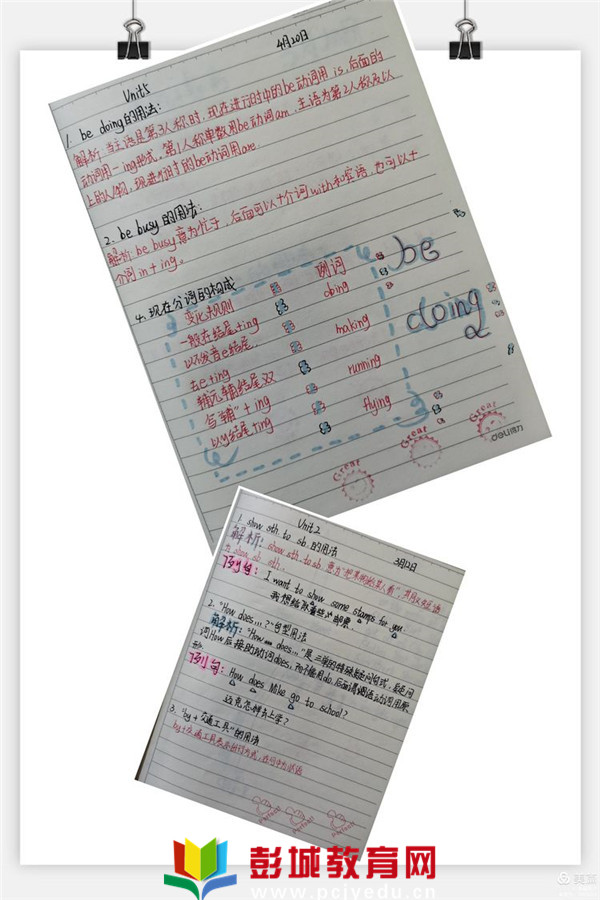 4月20日
Unit5
1. be doing的用法:
解析:当主语是第3人称时,现在进行时中的be动词用 is,后面的
动词用-ing形式,第1人称单数用be动词am,主语为第2人称及以
上的人/物,现进行时的be动词用are.
2. be busy的用法:
解析: be busy意为忙于,后面可以+介词with和宾语,也可以+
介词in+ing。
4.现在分词的构成
变化规则 例词
一般在结尾+ing doing
以不发音e结尾,
去e+ing making
辅元辅结尾双
写"辅"+ing running
以y结尾+ing flying
be
doing
Great
Great
Great
deli得力
Unit2
3月12日
1. show sth to sb.的用法
解析: show sth. to sb 意为"把某物给某人看",
为 show sb sth.
例句: I want to show some stamps for you.
我想给你看些邮票.
2. "How does...?"句型用法
解析: "How does...?"是三单的特殊疑问句式,疑问
词How后接助动词does, 不能用do,后面谓语动词用原
形
例句: How does Mike go to school?
迈克怎样去上学?
3. "by+交通工具"的用法
by+交通工具表示出行方式,
Perfect!
Perfect!
Perfect!
彭城教育网
www.pcjyedu.cn
美篇